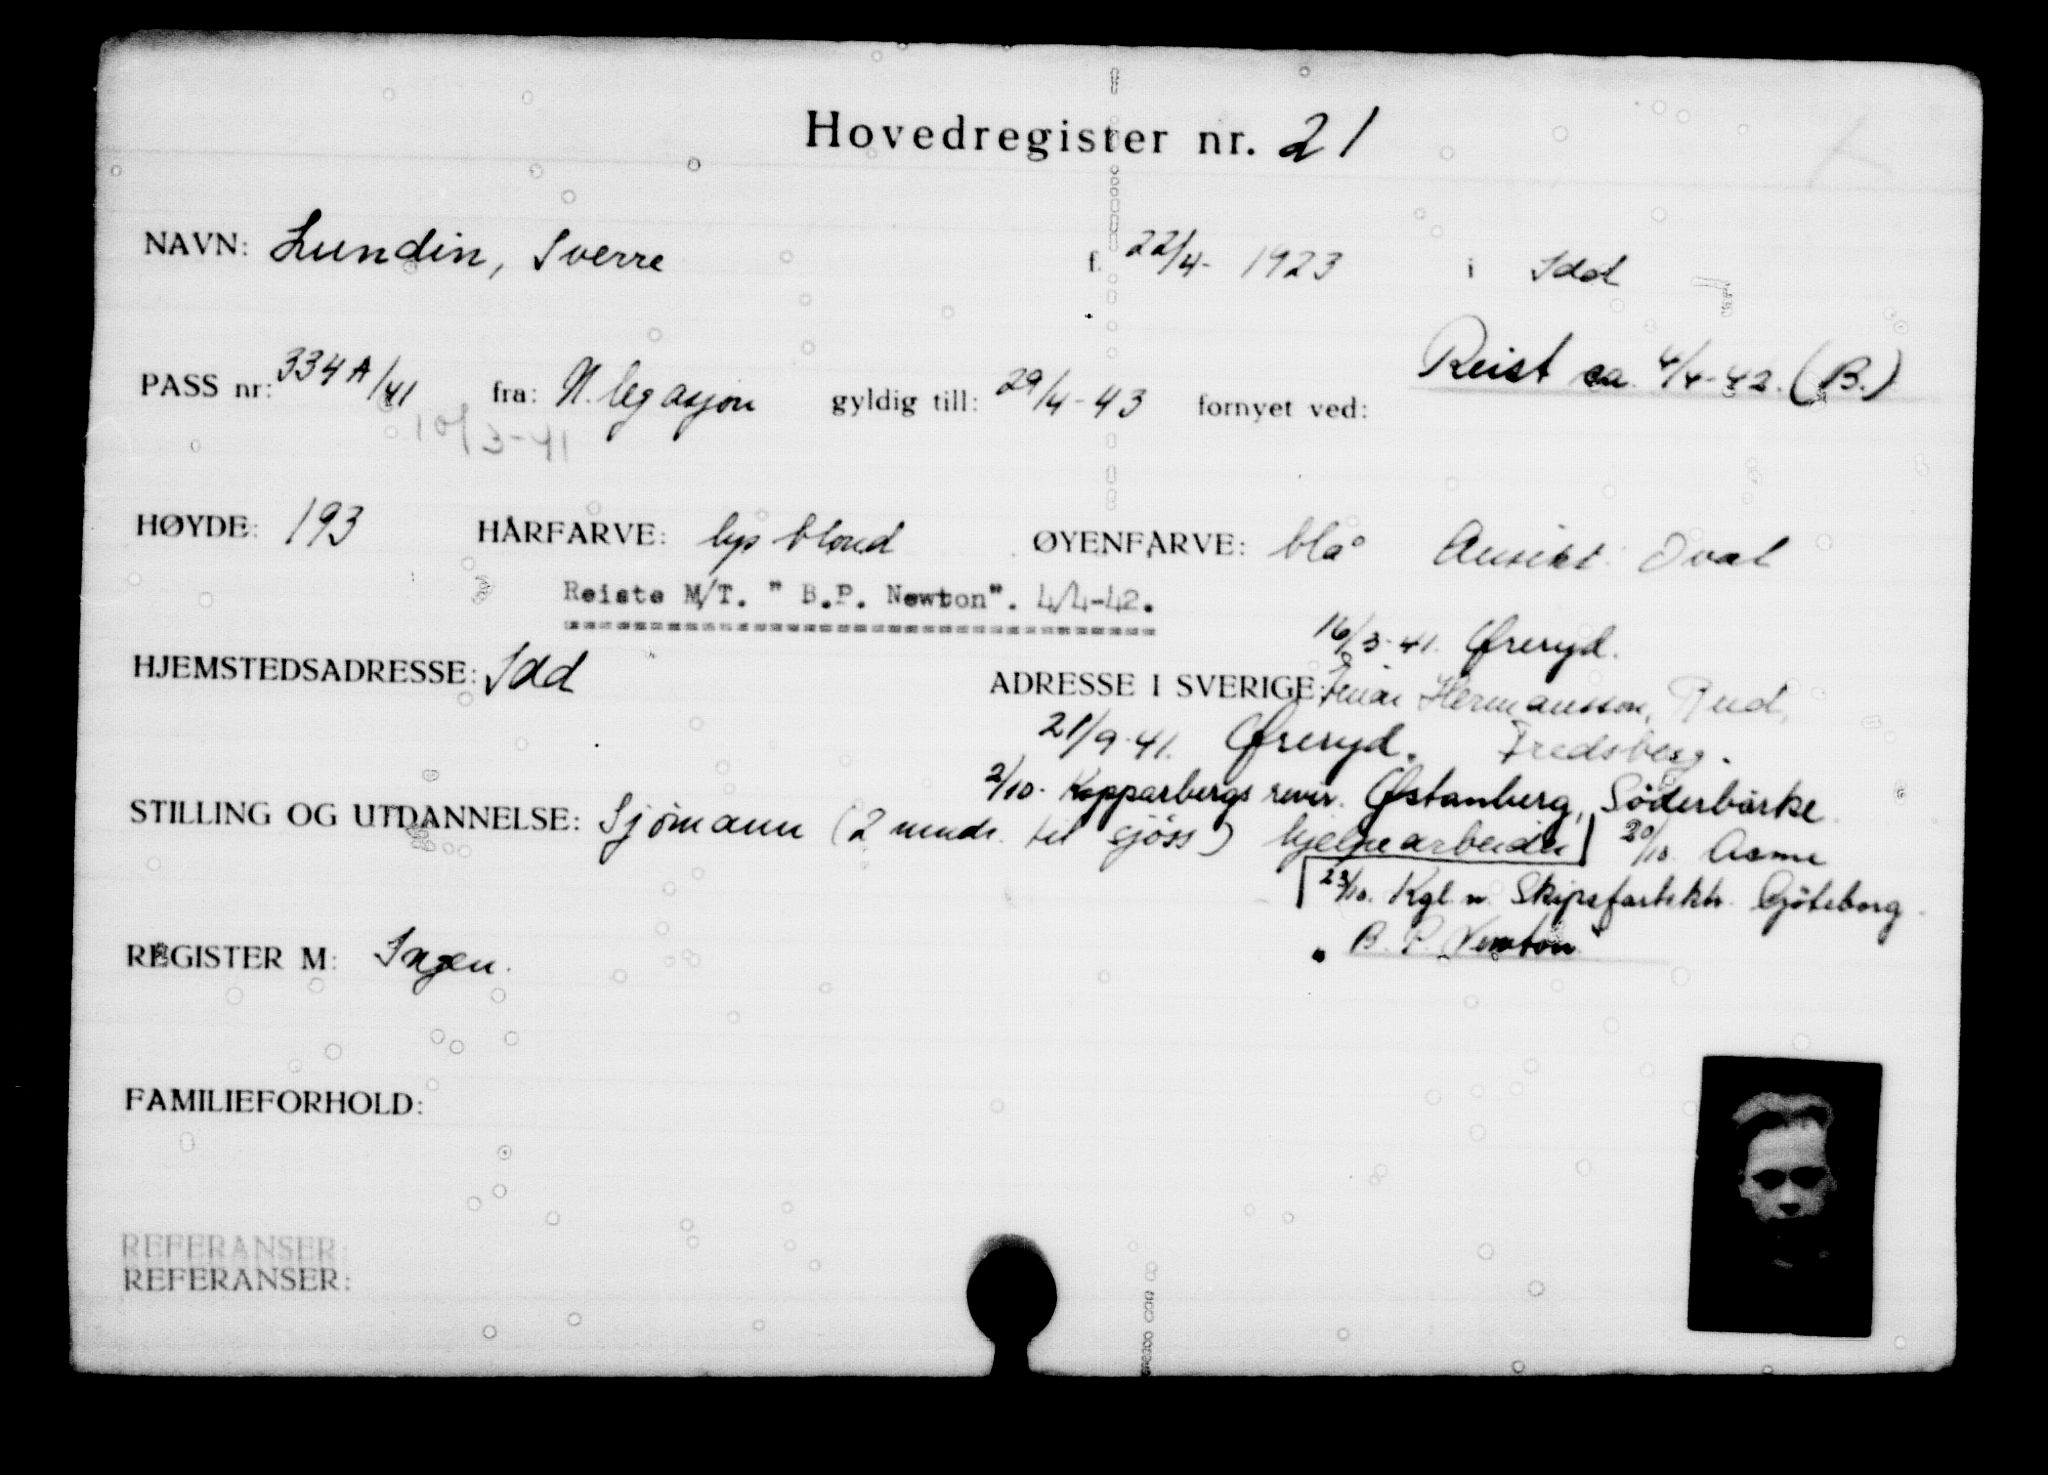 Hovedregister nr. 21
NAVN: Lundin, Sverre f. 22/4- 1923 i Idd
Reist ca. 4/4-42. (B.)
PASS nr: 334A/41 fra: N. legasjon gyldig till: 29/4-43 fornyet ved:
10/3-41
HØYDE: 193 HÅRFARVE: lys blond ØYENFARVE: blå Ansikt: Oval
Reiste M/T. " B.P. Newton". 4/4-42.
16/3-41. Øreryd.
HJEMSTEDSADRESSE: Idd ADRESSE I SVERIGE: Hermansson, Rud,
21/9-41. Øreryd. Fredsberg.
2/10. Kopparbergs revir. Østanberg, Söderbärke.
STILLING OG UTDANNELSE: Sjømann (2 mndr. til sjøss) hjelpearbeider 20/10.
23/10. Kgl. n. Skipsfartsktr. Göteborg.
REGISTER M: Ingen. " B. P. Newton
FAMILIEFORHOLD:
REFERANSER:
REFERANSER: